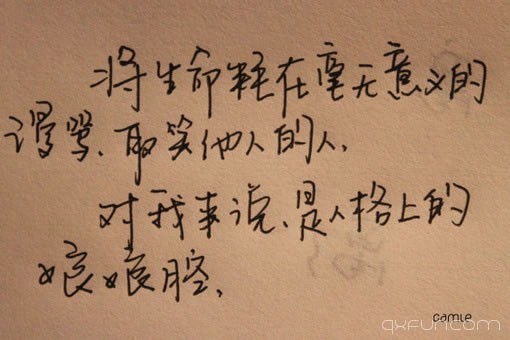 将生命耗在毫无意义的
谩骂、取笑他人的人、
对我来说、是人格上的
娘娘腔、
camie
qxfun.com